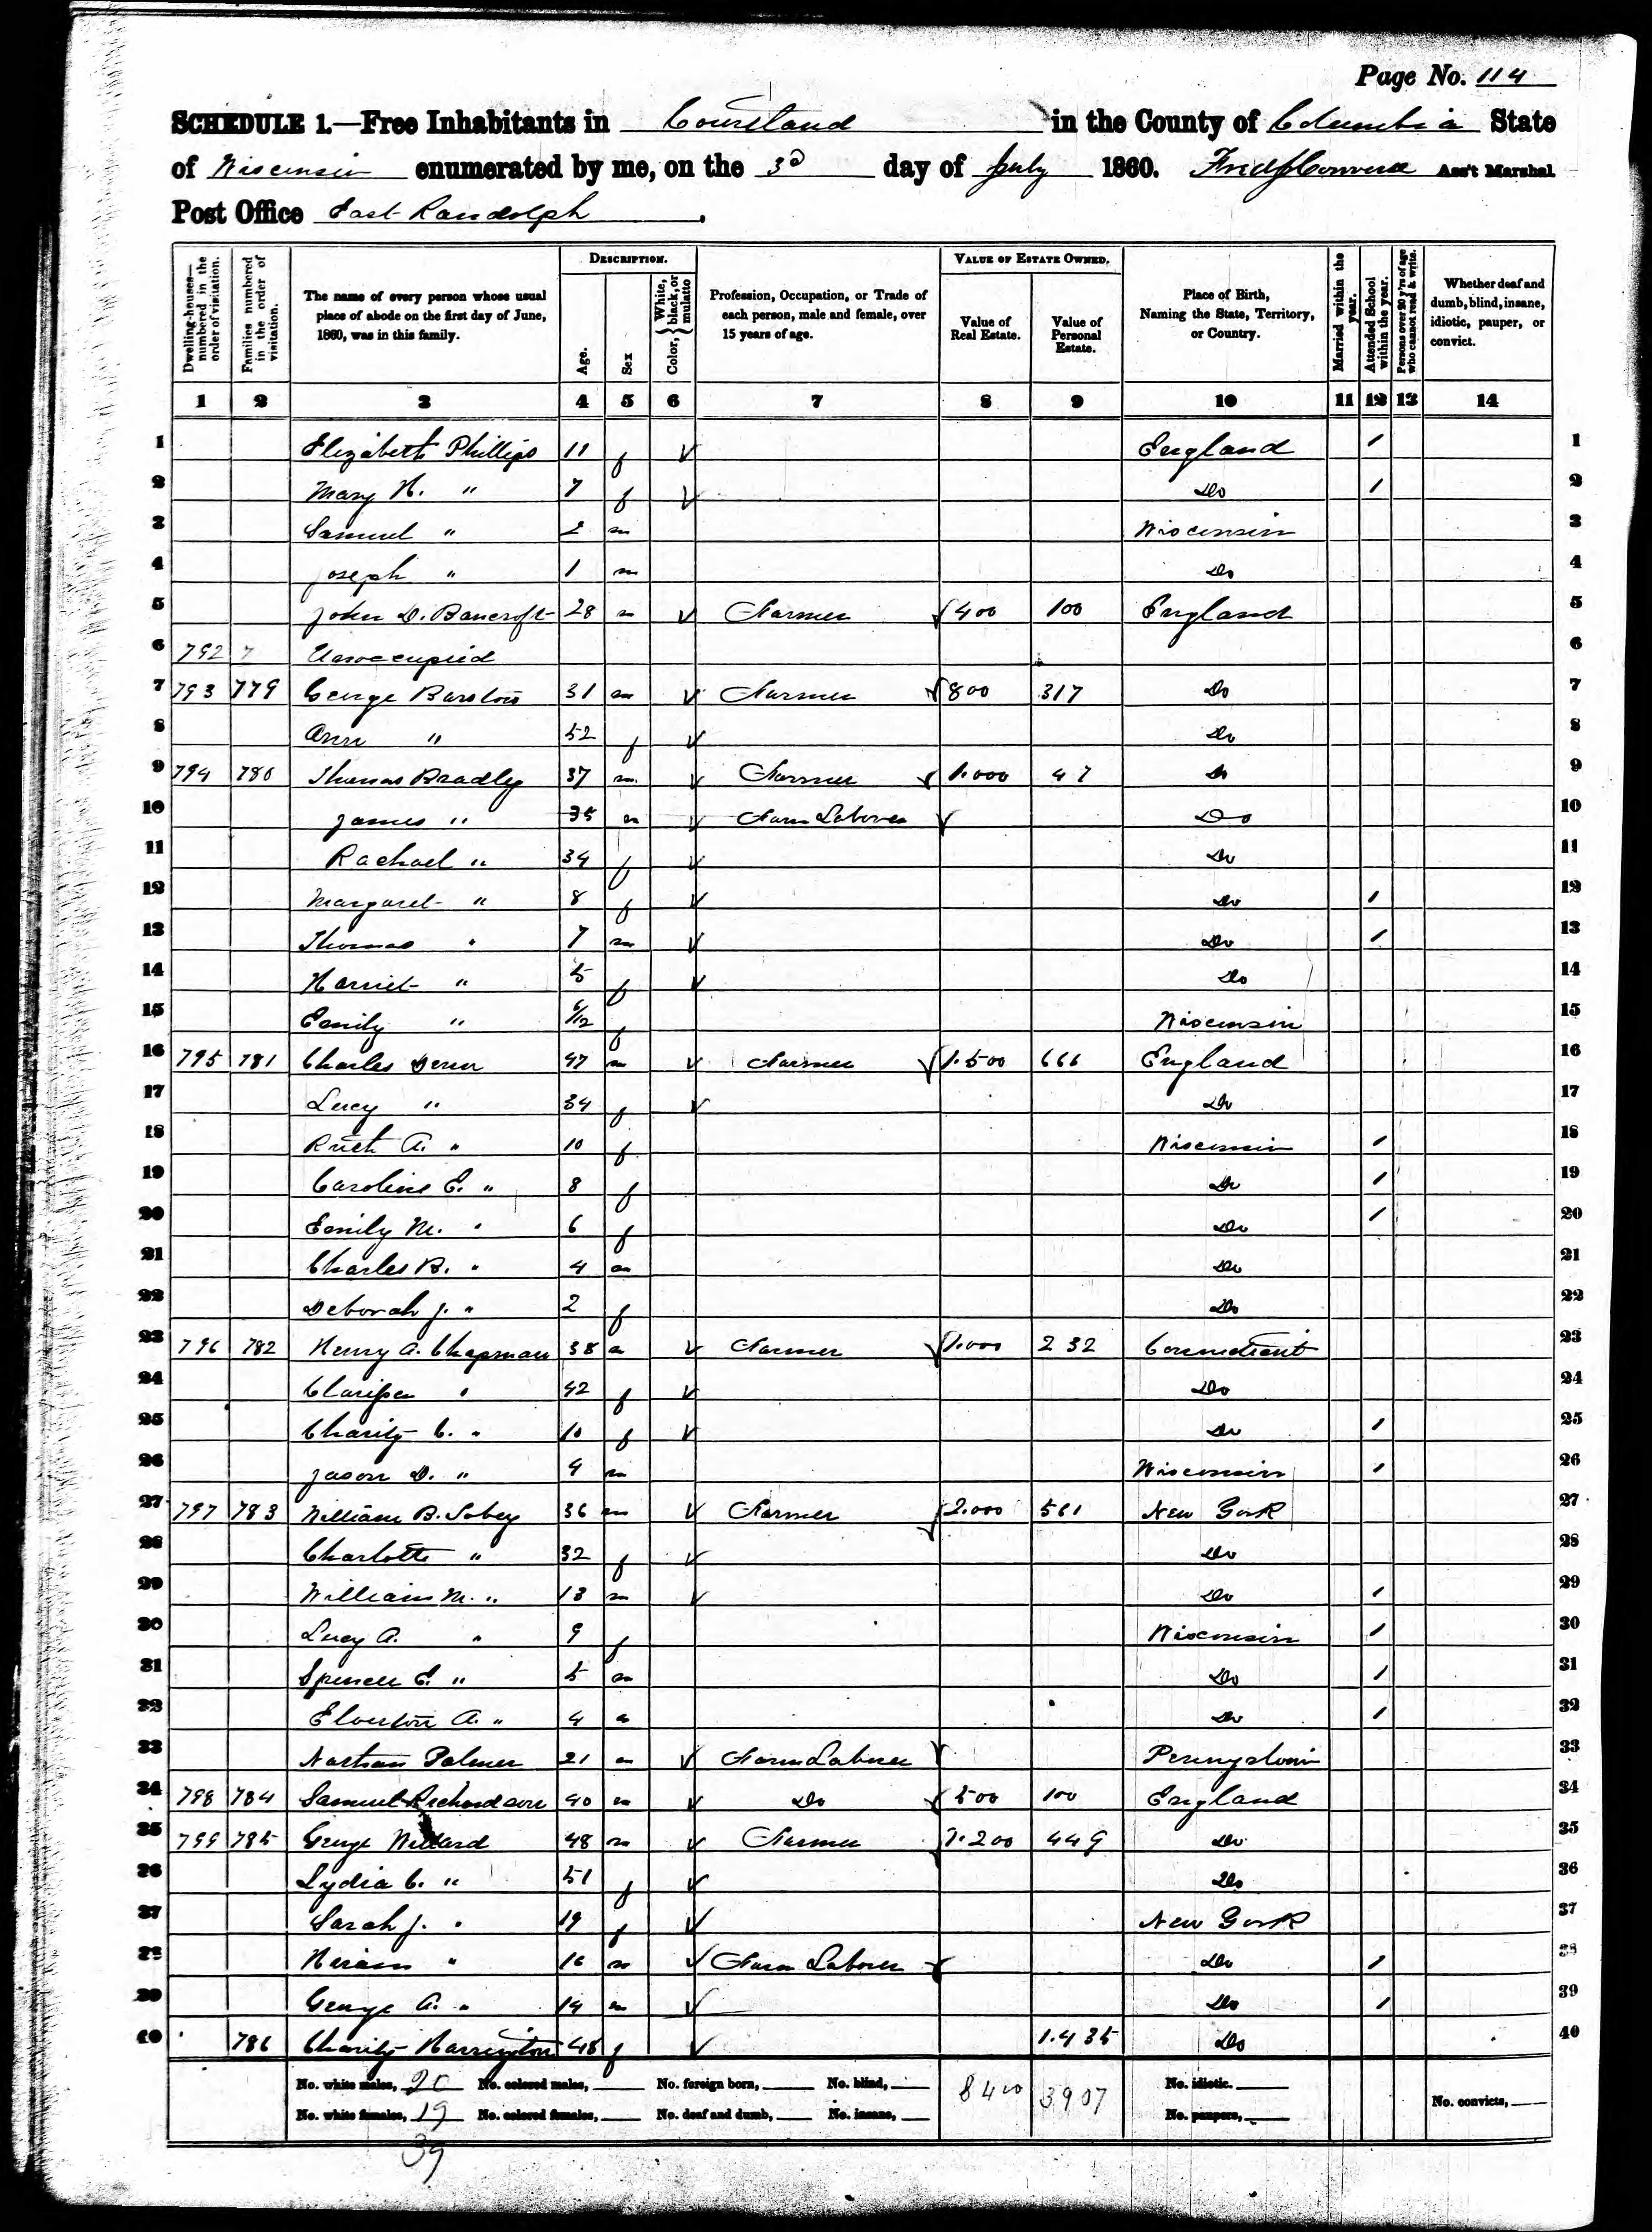 Page No. 114
SCHEDULE 1.—Free Inhabitants in Courtland in the County of Columbia State
of Wisconsin enumerated by me, on the 3d day of July 1860. Fred J Converse Ass't Marshal
Post Office East Randolph.
Dwelling-houses—numbered in the order of visitation. Families numbered in the order of visitation. The name of every person whose usual place of abode on the first day of June, 1860, was in this family. DESCRIPTION. Age. Sex Color, { White, black, or mulatto Profession, Occupation, or Trade of each person, male and female, over 15 years of age. VALUE OF ESTATE OWNED. Value of Real Estate. Value of Personal Estate. Place of Birth, Naming the State, Territory, or Country. Married within the year. Attended School within the year. Persons over 20 y'rs of age who cannot read & write. Whether deaf and dumb, blind, insane, idiotic, pauper, or convict.
1 2 3 4 5 6 7 8 9 10 11 12 13 14
1 Elizabeth Phillips 11 f England / 1
2 Mary H. " 7 f Do / 2
3 Samuel " 2 m Wisconsin 3
4 Joseph " 1 m Do 4
5 John D. Bancroft 28 m Farmer 400 100 England 5
6 792 7 Unoccupied 6
7 793 779 George Barstow 31 m Farmer 800 317 Do 7
8 Ann " 52 f Do 8
9 794 780 Thomas Bradley 37 m Farmer 1.000 47 Do 9
10 James " 35 m Farm Laborer Do 10
11 Rachael " 34 f Do 11
12 Margaret " 8 f Do / 12
13 Thomas " 7 m Do / 13
14 Harriet " 5 f Do 14
15 Emily " 6/12 f Wisconsin 15
16 795 781 Charles Denn 47 m Farmer 1.500 666 England 16
17 Lucy " 34 f Do 17
18 Ruth A. " 10 f Wisconsin / 18
19 Caroline E. " 8 f Do / 19
20 Emily M. " 6 f Do / 20
21 Charles B. " 4 m Do 21
22 Deborah J. " 2 f Do 22
23 796 782 Henry A. Chapman 38 m Farmer 1.000 232 Connecticut 23
24 Clarissa " 42 f Do 24
25 Charity C. " 10 f Do / 25
26 Jason D. " 9 m Wisconsin / 26
27 797 783 William B. Sobey 36 m Farmer 2.000 561 New York 27
28 Charlotte " 32 f Do 28
29 William M. " 13 m Do / 29
30 Lucy A. " 9 f Wisconsin / 30
31 Spencer E. " 5 m Do / 31
32 Elverton A. " 4 m Do / 32
33 Nathan Palmer 21 m Farm Laborer Pennsylvani 33
34 798 784 Samuel Richardson 40 m Do 500 100 England 34
35 799 785 George Willard 48 m Farmer 1.200 449 Do 35
36 Lydia C. " 51 f Do 36
37 Sarah J. " 19 f New York 37
38 Hiram " 16 m Farm Laborer Do / 38
39 George A. " 14 m Do / 39
40 786 Charity Harrington 48 f 1.435 Do 40
No. white males, 20 No. colored males, No. foreign born, No. blind, 8400 3907 No. idiotic.
No. white females, 19 No. colored females, No. deaf and dumb, No. insane, No. paupers, No. convicts,
39